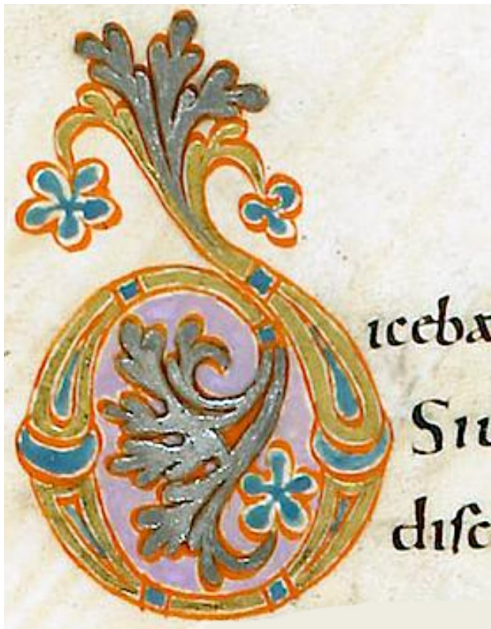 Diceba
Siu
disc